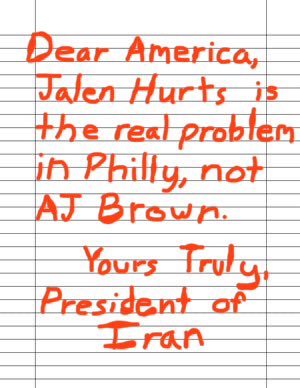 Dear America,
Jalen Hurts is
the real problem
in Philly, not
AJ Brown.
Yours Truly,
President of
Iran